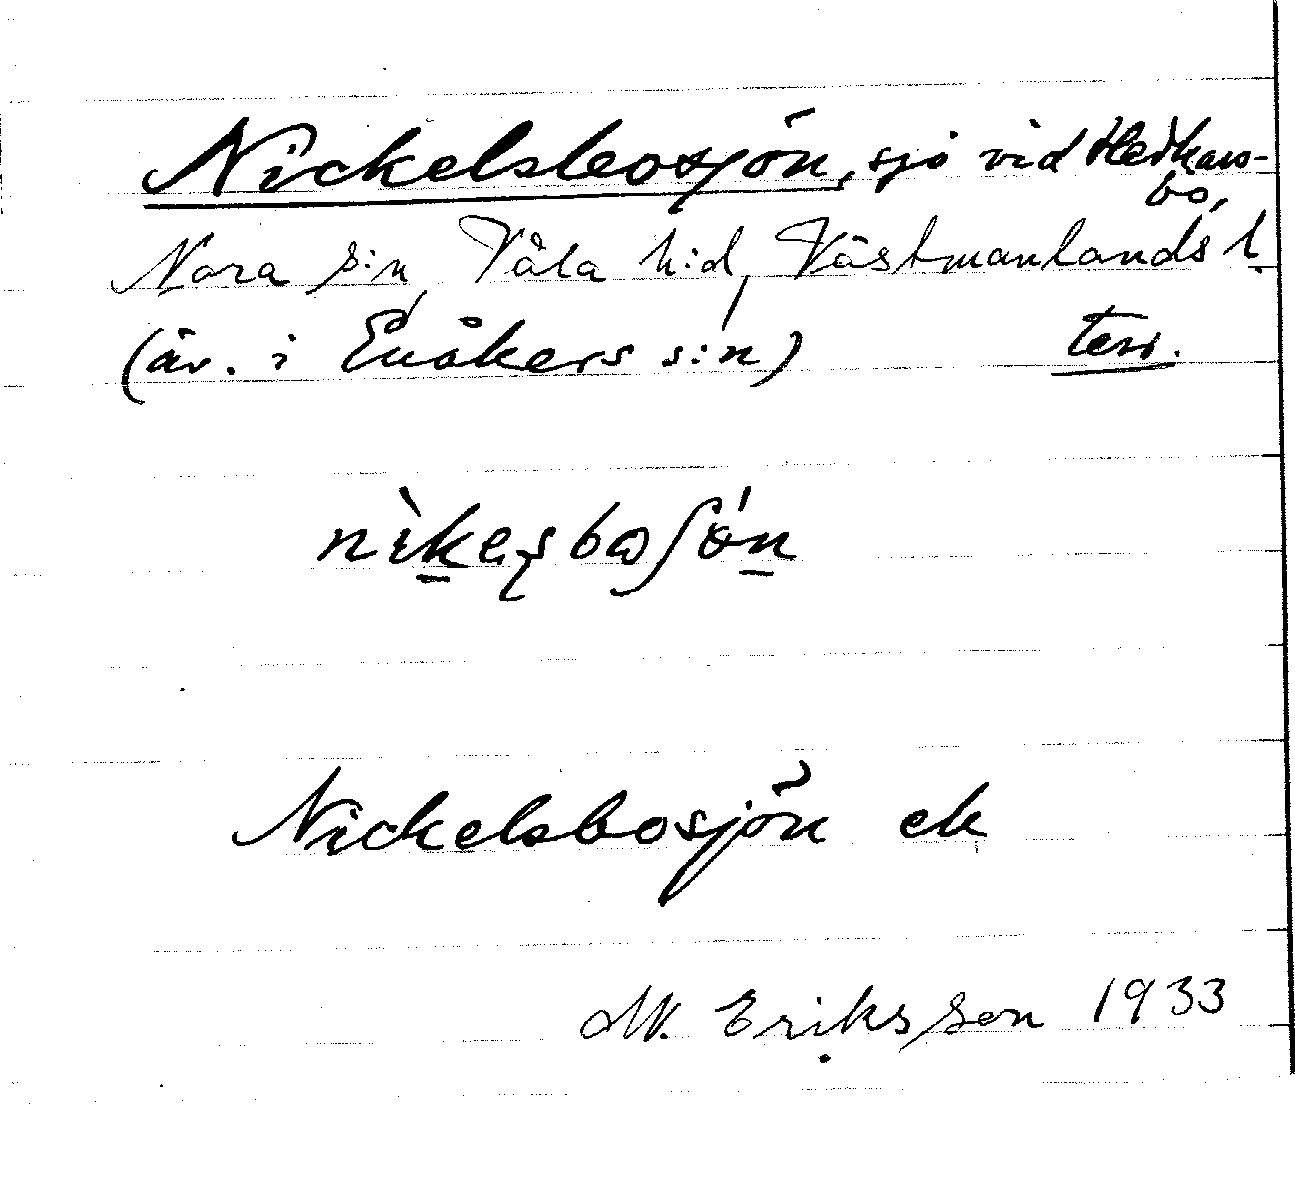 Nickelsbosjön, sjö vid Heikans-
bo,
Nora s:n, Våla h:d, Västmanlands l.
(äv. i Enåkers s:n) terr.
Nickelsbosjön ek
M. Eriksson 1933